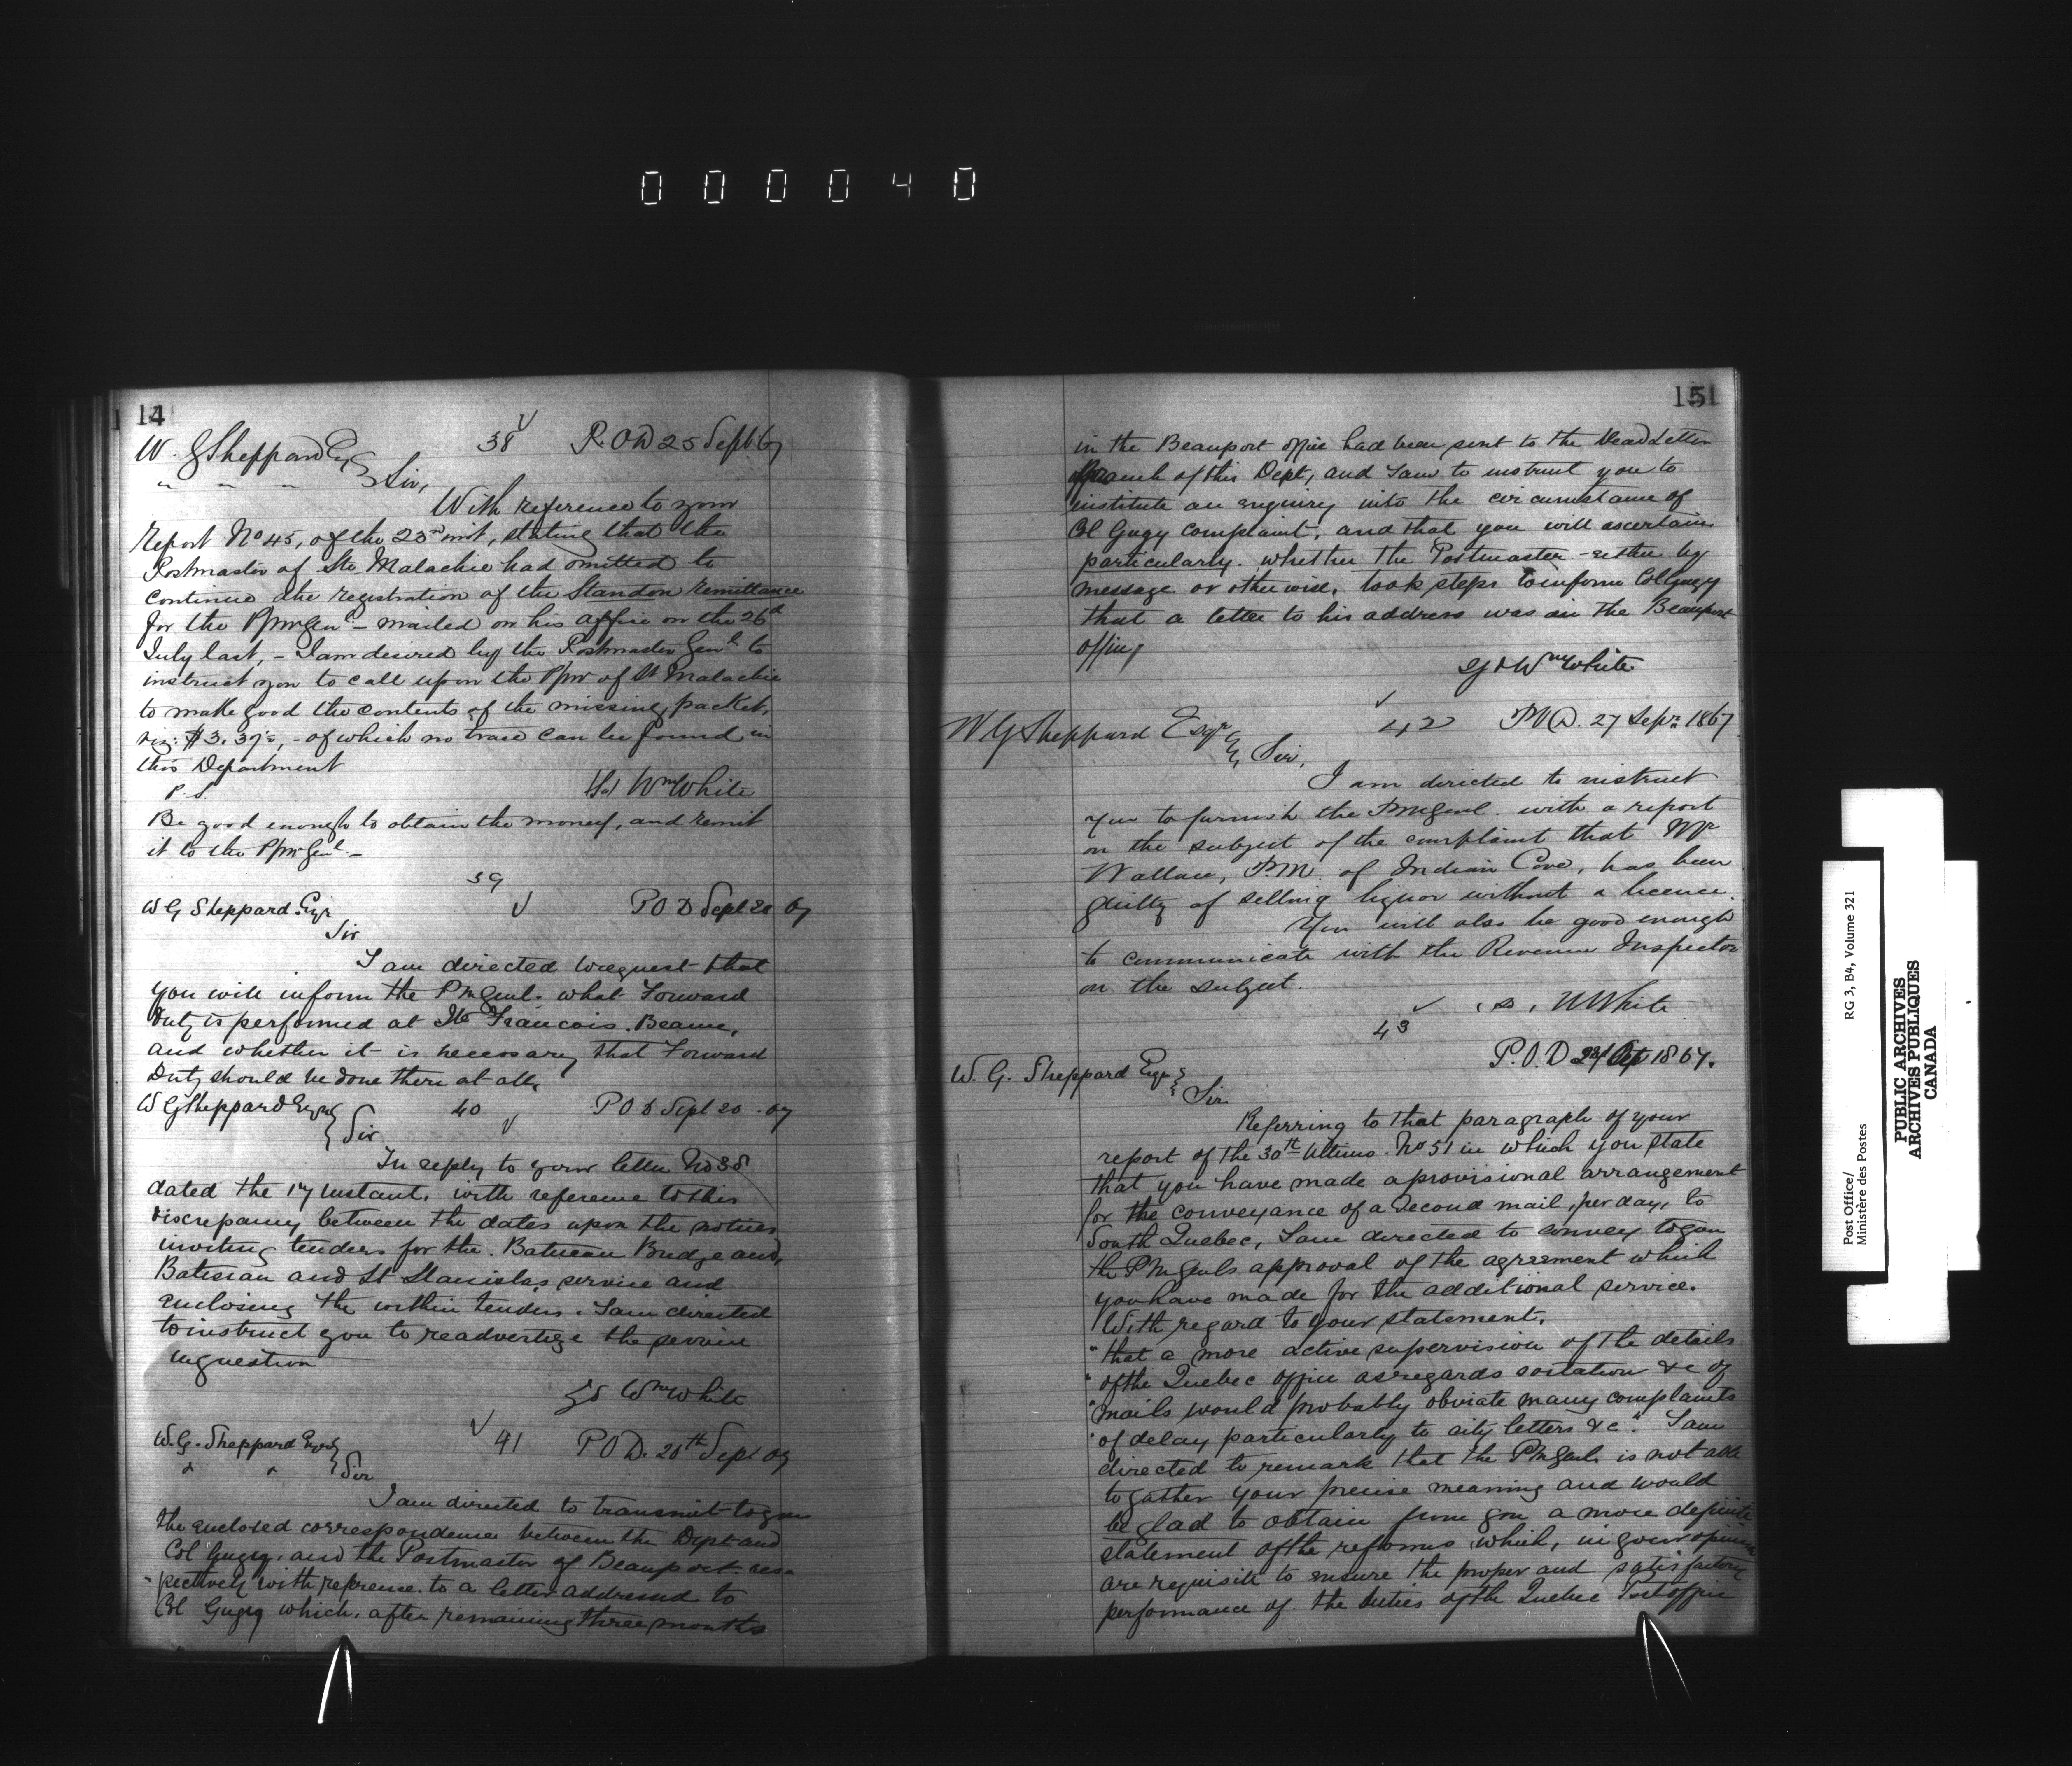 000040
14
W. G Sheppard Esq 38 P.O.D 25 Sept 67
" " " Sir,
With reference to your
Report No 45, of the 23rd inst, stating that the
Postmaster of Ste Malachie had omitted to
continue the registration of the Standon remittance
for the PpmGenl - mailed on his office on the 26th
July last, - I am desired by the Postmaster Genl to
instruct you to call upon the Ppmr of St Malachie
to make good the contents of the missing packet,
viz: $3.37½, - of which no trace can be found in
this Department
P.S. Sd Wm White
Be good enough to obtain the money, and remit
it to the PpmrGenl. -
39
W G Sheppard Esqr POD Sept 20 67
Sir
I am directed to request that
you will inform the PMGenl. what Forward
Duty is performed at Ste Francois. Beauce,
and whether it is necessary that Forward
Duty should be done there at all.
W G Sheppard Esqr 40 POD Sept 20 - 67
Sir
In reply to your letter No 38
dated the 17 Instant, with reference to this
discrepancy between the dates upon the notices
inviting tenders for the Batiscan Bridge and,
Batiscan and St Stanislas service and
enclosing the within tenders. I am directed
to instruct you to readvertize the service
in question
Sd Wm White
W. G. Sheppard Esqr 41 POD. 26th Sept 67
" " Sir
I am directed to transmit to you
the enclosed correspondence between the Dept and
Col Gugy, and the Postmaster of Beauport. res-
-pectively with reference to a letter addressed to
Col Gugy which, after remaining three months
151
in the Beauport office had been sent to the Dead Letter
Branch of this Dept, and I am to instruct you to
institute an enquiry into the circumstance of
Col Gugy complaint, and that you will ascertain
particularly. whether the Postmaster - either by
message or otherwise, took steps to inform Col Gugy
that a letter to his address was in the Beauport
office
Sgd Wm White
W G Sheppard Esqr 42 P.O.D. 27 Sepr 1867
Sir,
I am directed to instruct
you to furnish the PMGenl. with a report
on the subject of the complaint that Mr
Wallace, P.M. of Indian Cove, has been
guilty of selling liquor without a licence.
You will also be good enough
to communicate with the Revenue Inspector
on the subject.
(S) W White
43
P.O.D Oct 1867.
W. G. Sheppard Esqr
Sir
Referring to that paragraph of your
report of the 30th Ultimo No 51 in which you state
that you have made a provisional arrangement
for the conveyance of a Second mail, per day, to
South Quebec, I am directed to convey to you
the PMGenls approval of the agreement which
you have made for the additional service.
With regard to your statement,
"that a more active supervision of the details
"of the Quebec office as regards sortation &c of
"mails would probably obviate many complaints
"of delay particularly to city letters &c". I am
directed to remark that the PMGenl. is not able
to gather your precise meaning and would
be glad to obtain from you a more definite
statement of the reforms which, in your opinion
are requisite to ensure the proper and satisfactory
performance of the duties of the Quebec Post office
Post Office/
Ministère des Postes
RG 3, B4, Volume 321
PUBLIC ARCHIVES
ARCHIVES PUBLIQUES
CANADA